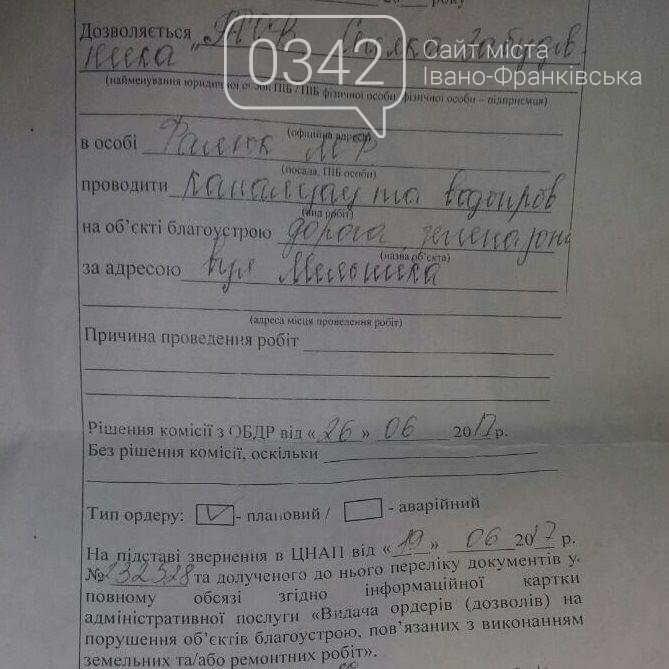 20 року
Дозволяється „ТОВ Спілка забудів
ника
0342 Сайт міста
Івано-Франківська
(найменування юридичної особи ПІБ / ПІБ фізичної особи, фізичної особи – підприємця)
(офіційна адреса)
в особі Фалюк М Р
(посада, ПІБ особи)
проводити каналізац та водопров
(вид робіт)
на об’єкті благоустрою дорога, зелена зона
(назва об’єкта)
за адресою вул Мельника
(адреса місця проведення робіт)
Причина проведення робіт
Рішення комісії з ОБДР від «26» 06 2017 р.
Без рішення комісії, оскільки
Тип ордеру: - плановий / - аварійний
На підставі звернення в ЦНАП від «19» 06 2017 р.
№232528 та долученого до нього переліку документів у
повному обсязі згідно інформаційної картки
адміністративної послуги «Видача ордерів (дозволів) на
порушення об’єктів благоустрою, пов’язаних з виконанням
земельних та/або ремонтних робіт».